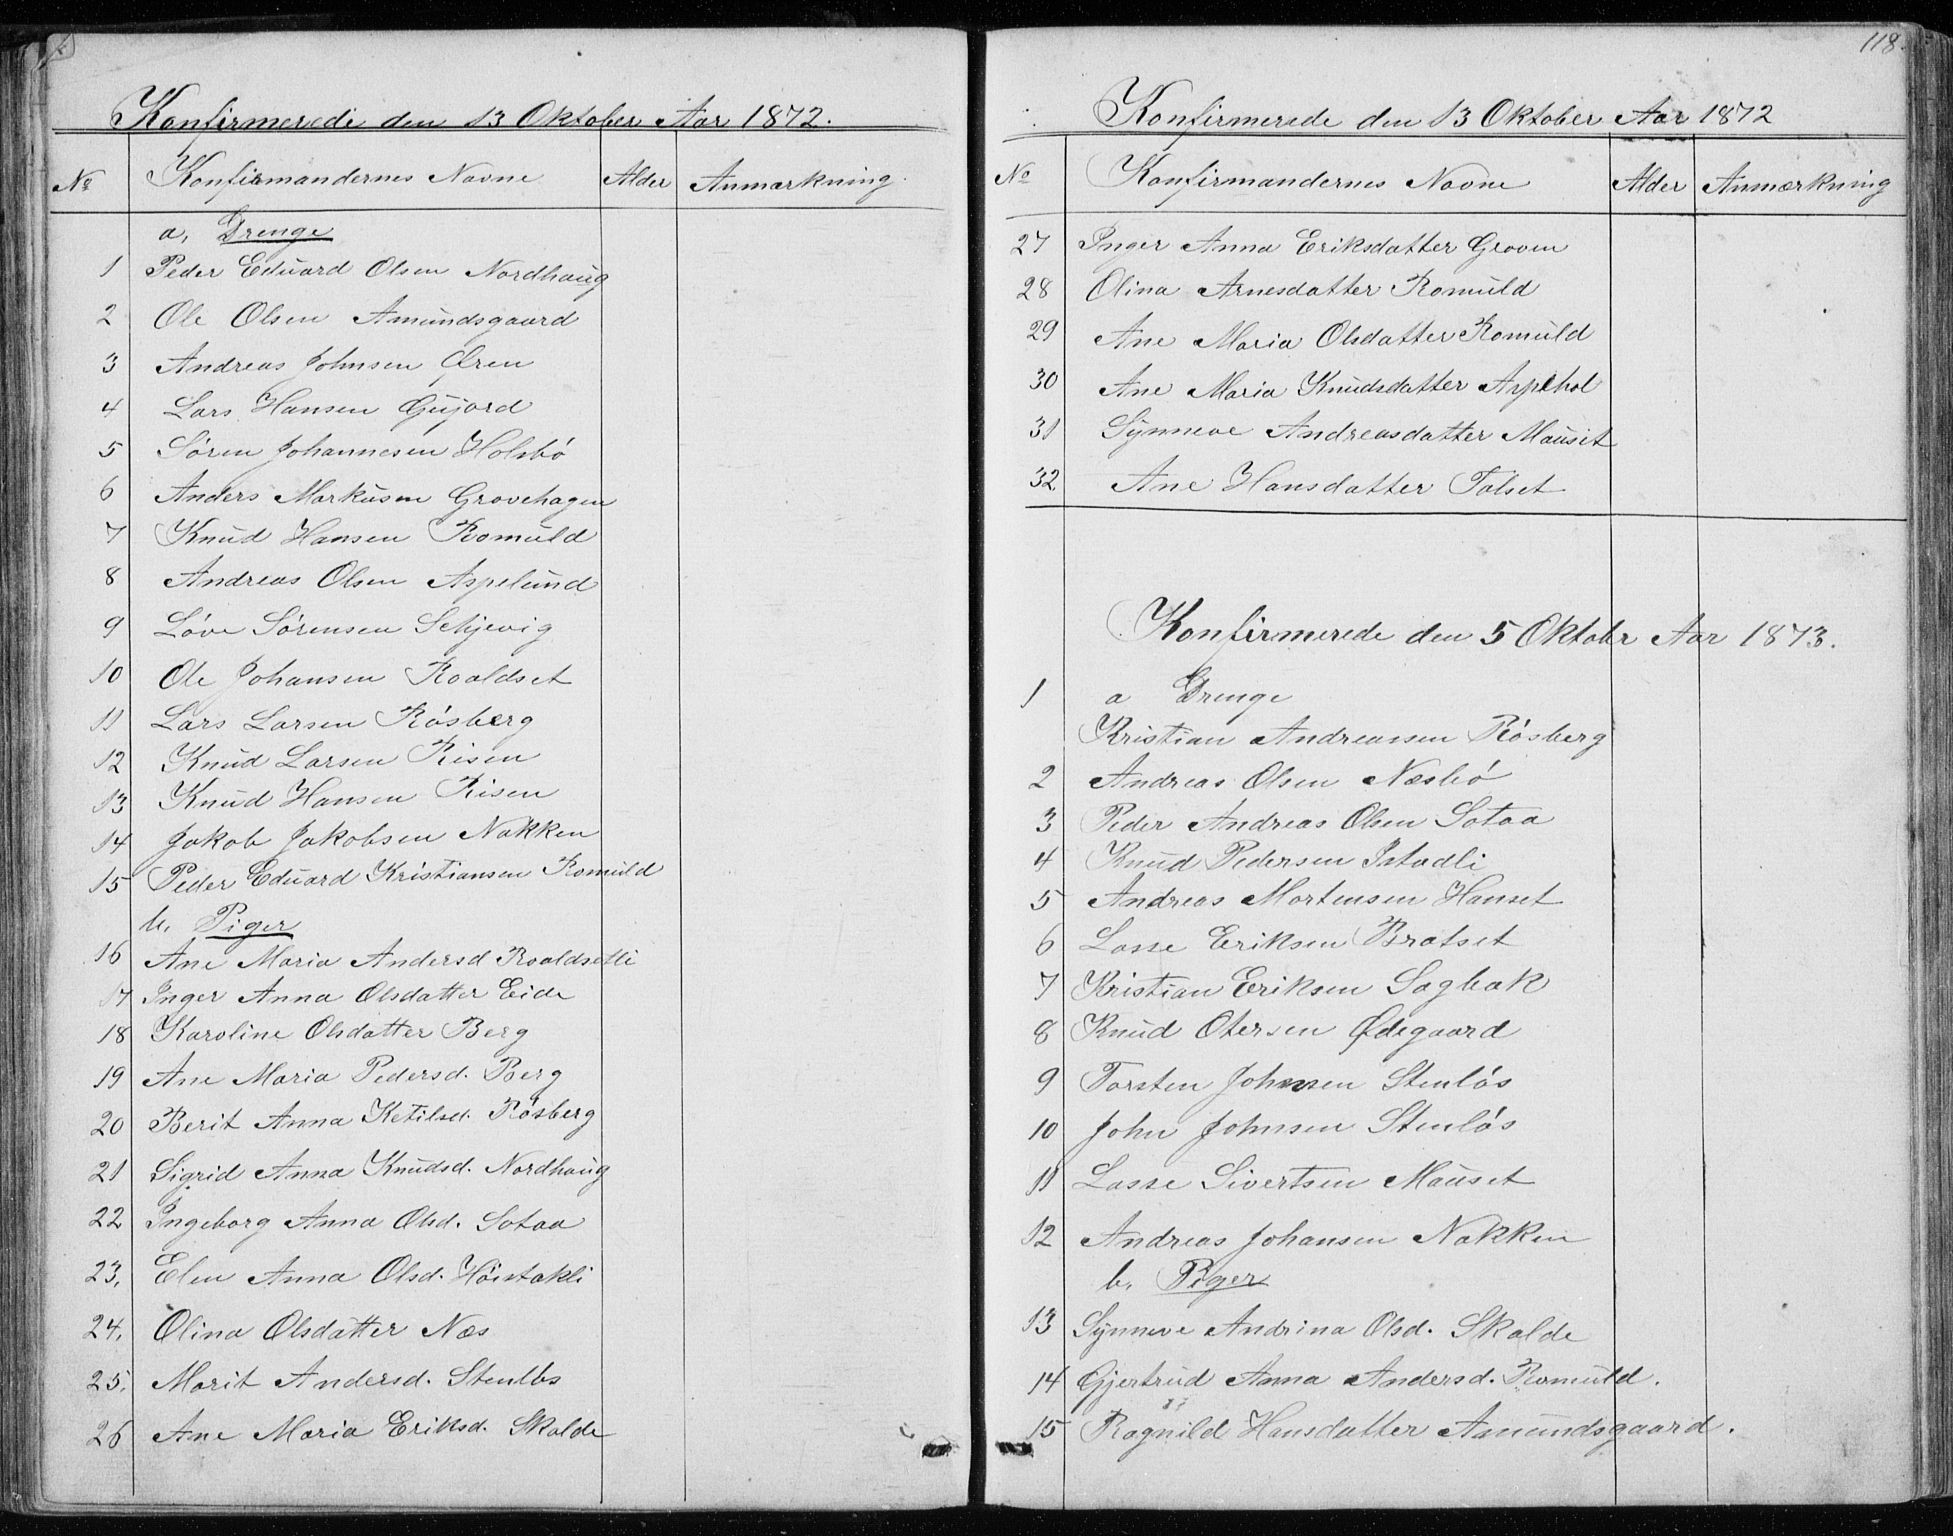 Konfirmerede den 13 Oktober Aar 1872.
No Konfirmandernes Navne Alder Anmærkning.
a, Drenge
1 Peder Eduard Olsen Nordhaug
2 Ole Olsen Amundsgaard
3 Andreas Johnsen Øren
4 Lars Hansen Gujord
5 Søren Johannesen Holsbø
6 Anders Markusen Grovehagen
7 Knud Hansen Romuld
8 Andreas Olsen Aspelund
9 Løve Sørensen Schjevig
10 Ole Johansen Roaldset
11 Lars Larsen Røsberg
12 Knud Larsen Risen
13 Knud Hansen Risen
14 Jakob Jakobsen Nakken
15 Peder Eduard Kristiansen Romuld
b. Piger
16 Ane Maria Andersd Roaldsetli
17 Inger Anna Olsdatter Eide
18 Karoline Olsdatter Berg
19 Ane Maria Pedersd. Berg
20 Berit Anna Ketilsd. Røsberg
21 Sigrid Anna Knudsd. Nordhaug
22 Ingeborg Anna Olsd. Sotaa
23, Elen Anna Olsd. Høistakli
24, Olina Olsdatter Næs
25, Marit Andersd. Stenløs
26 Ane Maria Eriksd. Skalde
118.
Konfirmerede den 13 Oktober Aar 1872
No Konfirmandernes Navne Alder Anmærkning
27 Inger Anna Eriksdatter Groven
28 Olina Arnesdatter Romuld
29 Ane Maria Olsdatter Romuld
30 Ane Maria Knudsdatter Asplhol
31 Synneve Andreasdatter Mauset
32 Ane Hansdatter Talset
Konfirmerede den 5 Oktober Aar 1873.
1 a Drenge
Kristian Andreassen Røsberg
2 Andreas Olsen Næsbø
3 Peder Andreas Olsen Sotaa
4 Knud Pedersen Istadli
5 Andreas Mortensen Hanset
6 Lasse Eriksen Bratset
7 Kristian Eriksen Sagbak
8 Knud Otersen Ødegaard
9 Torsten Johnsen Stenløs
10 John Johnsen Stenløs
11 Lasse Sivertsen Mauset
12 Andreas Johansen Nakken
b. Piger
13 Synneve Andrina Olsd. Skalde
14 Gjertrud Anna Andersd. Romuld.
15 Ragnild Hansdatter Amundsgaard.